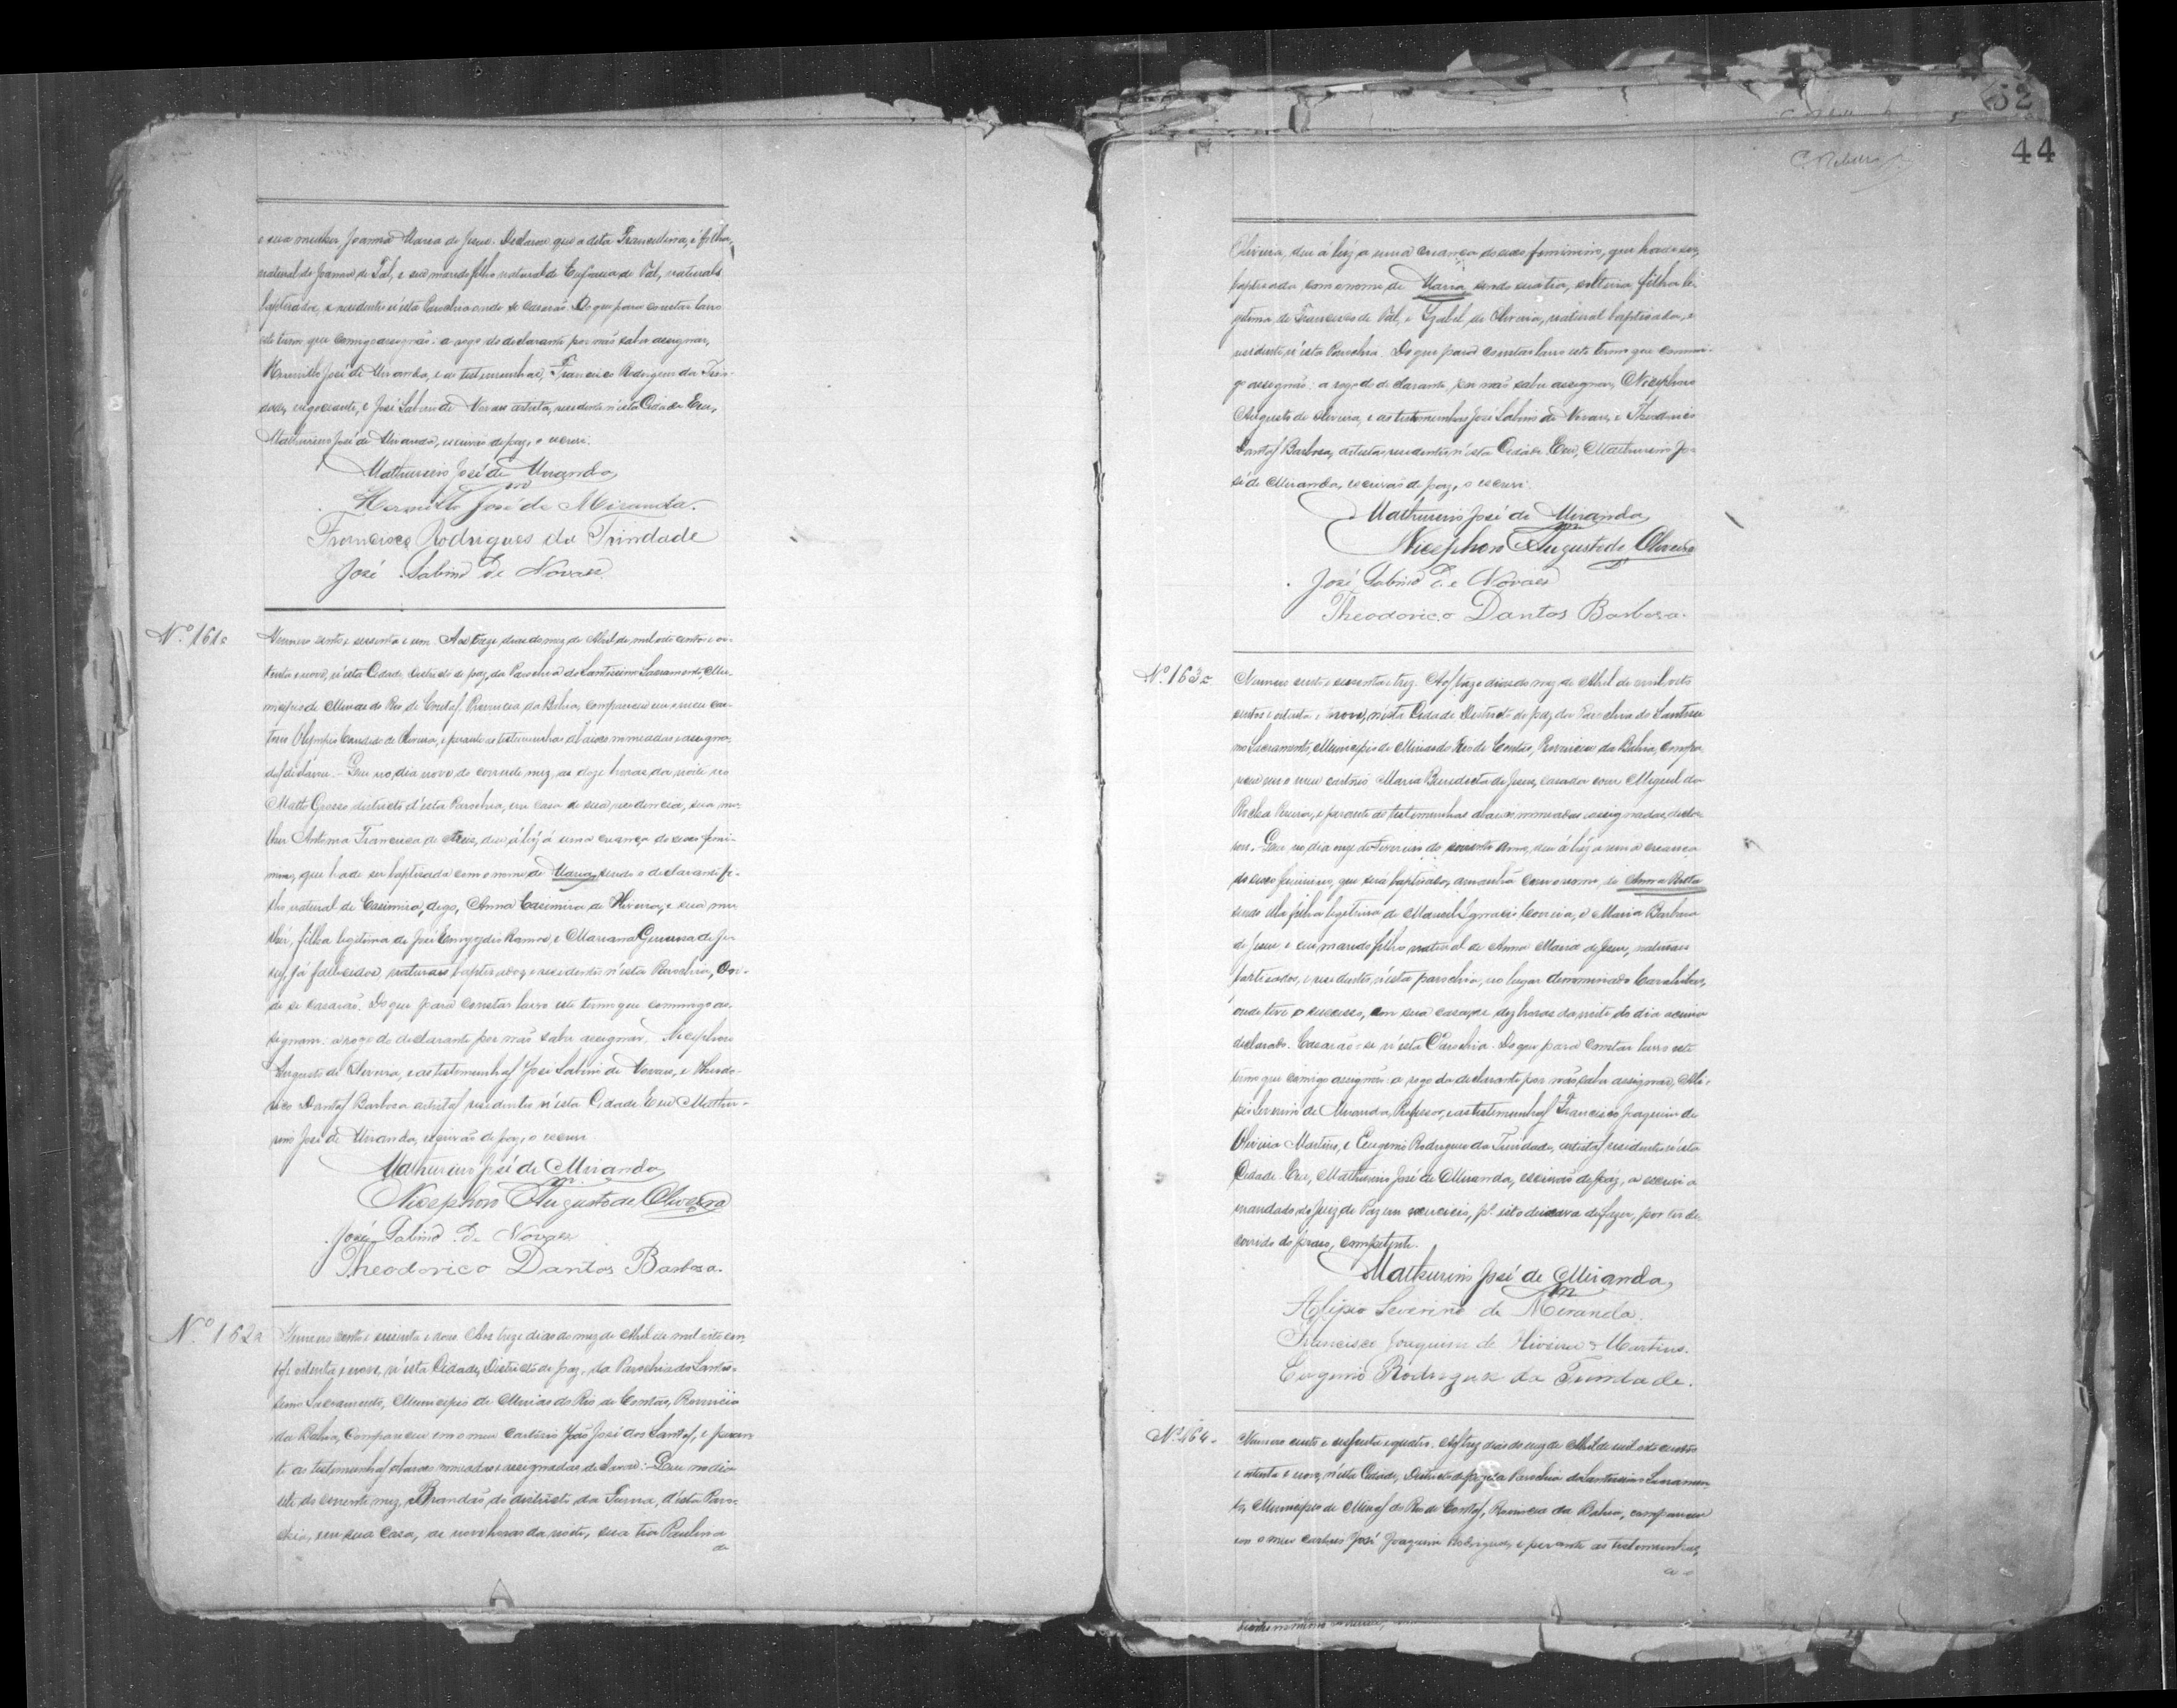 e sua mulher, Joanna Maria de Jesus. Declarou que a dita Franculina, é filha,
natural de Joanna de Tal, e seu marido filho natural de Eufrasia de Tal, naturaes,
baptisados, e residentes n'esta Parochia onde se casarão. Do que para constar lavro
este termo que comigo assignão: a rogo do declarante por não saber assignar,
Hermillo José de Miranda, e as testemunhas, Francisco Rodrigues da Trin-
dade, negociante, e José Sabino de Novaes artista, residentes n'esta Cidade. Eu,
Mathurino José de Miranda, escrivão de paz, o escrevi.
Mathurino José de Miranda
Hermillo José de Miranda.
Francisco Rodrigues da Trindade
José Sabino de Novaes
Nº 161
Numero cento e sessenta e um. Aos treze dias do mez de Abril de mil oito centos e oi-
tenta e nove, n'esta Cidade, Districto de paz, da Parochia do Santissimo Sacramento, Mu-
nicipio de Minas do Rio de Contas, Provincia da Bahia, compareceu em o meu car-
torio Olympio Candido de Oliveira, e perante as testemunhas abaixo nomeadas e assigna-
das, declarou: Que no dia nove do corrente mez, as doze horas da noite no
Matto Grosso districto d'esta Parochia, em casa de sua residencia, sua mu-
lher Antonia Francisca de Jesus, deu á luz á uma creança do sexo femi-
nino, que hade ser baptisada com o nome de Maria, sendo o declarante fi-
lho natural de Casimira, digo, Anna Casimira de Oliveira, e sua mu-
lher, filha legitima de José Emygydio Ramos, e Marianna Gerunsa de Je-
sus, já fallecidos, naturaes baptisados, e residentes n'esta Parochia, On-
de se casarão. Do que para constar lavro este termo que commigo as-
signam: a rogo do declarante por não saber assignar, Nicephoro
Augusto de Oliveira, e as testemunhas José Sabino de Novaes, e Theodo-
rico Dantas Barbosa artistas residentes n'esta Cidade. Eu Mathu-
rino José de Miranda, escrivão de paz, o escrevi.
Mathurino José de Miranda
Nicephoro Augusto de Oliveira
José Sabino de Novaes
Theodorico Dantas Barbosa.
Nº 162
Numero cento e sessenta e dous. Aos treze dias do mez de Abril de mil oito cen-
tos, oitenta e nove, n'esta Cidade, Districto de paz, da Parochia do Santis-
simo Sacramento, Municipio de Minas do Rio de Contas, Provincia
da Bahia, compareceu em o meu Cartorio João José dos Santos, e peran-
te as testemunhas abaixo nomeadas e assignadas, declarou: Que no dia
sete do corrente mez, Brandão do districto da Furna, d'esta Paro-
chia, em sua casa, as nove horas da noite, sua tia Paulina
de
52
44
Oliveira, deu á luz a uma creança do sexo feminino, que hade ser,
baptisada com o nome de Maria, sendo sua tia, solteira filha le-
gitima de Francisco de Tal, e Izabel de Oliveira, natural baptisada, e
residente, n'esta Parochia. Do que para constar lavro este termo que commi-
go assignão: a rogo do declarante, por não saber assignar, Nicephoro
Augusto de Oliveira, e as testemunhas José Sabino de Novaes, e Theodorico
Dantas Barbosa, artistas, residentes, n'esta Cidade. Eu, Mathurino Jo-
sé de Miranda, escrivão de paz, o escrevi.
Mathurino José de Miranda
Nicephoro Augusto de Oliveira
José Sabino de Novaes
Theodorico Dantas Barbosa.
Nº 163
Numero cento e sessenta e trez. Aos treze dias do mez de Abril de mil, oito
centos e oitenta e nove, n'esta Cidade Districto de paz, da Parochia do Santissi-
mo Sacramento, Municipio de Minas do Rio de Contas, Provincia da Bahia, compa-
receu em o meu cartorio Maria Benedicta de Jesus, casada com Miguel da
Rocha Pereira, e perante as testemunhas abaixo nomeadas e assignadas, decla-
rou. Que no dia onze de Fevereiro do corrente anno, deu á luz a uma creança
do sexo feminino, que será baptisada, amanhã com o nome, de Anna Bella
sendo ella filha legitima de Manoel Ignacio Correia, e Maria Barbara
de Jesus e seu marido filho natural de Anna Maria de Jesus, naturaes
baptisados, e residentes, n'esta parochia, no lugar denominado
onde teve o successo, em sua casa, as dez horas da noite do dia acima
declarado. Casarão-se n'esta Parochia. Do que para constar lavro este
termo que comigo assignão: a rogo da declarante por não saber assignar, Agli-
pio Severino de Miranda, Professor, e as testemunhas Francisco Joaquim de
Oliveira Martins, e Eugenio Rodrigues da Trindade, artistas, residentes n'esta
Cidade. Eu, Mathurino José de Miranda, escrivão de paz, o escrevi a
mandado do Juiz de Paz em exercicio, pr. isto deixava de fazer, por ter de-
corrido do praso, competente.
Mathurino José de Miranda
Aglipio Severino de Miranda.
Francisco Joaquim de Oliveira Martins.
Eugenio Rodrigues da Trindade.
Nº 164
Numero cento e sessenta e quatro. Aos treze dias do mez de Abril de mil oito centos
e oitenta e nove, n'esta Cidade, Districto de paz, da Parochia do Santissimo Sacramen-
to, Municipio de Minas do Rio de Contas, Provincia da Bahia, compareceu
em o meu cartorio José Joaquim Rodrigues, e perante as testemunhas,
a